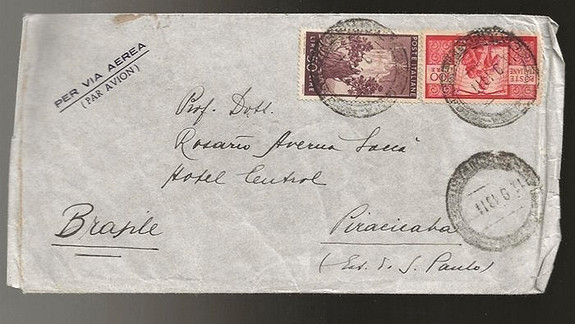 PER VIA AEREA
(PAR AVION)
POSTE ITALIANE
LIRE 50
POSTE ITALIANE
Prof. Dott.
Rosario Averna Saccà
Hotel Central
Brasile
Piracicaba
(Est. d. S. Paulo)